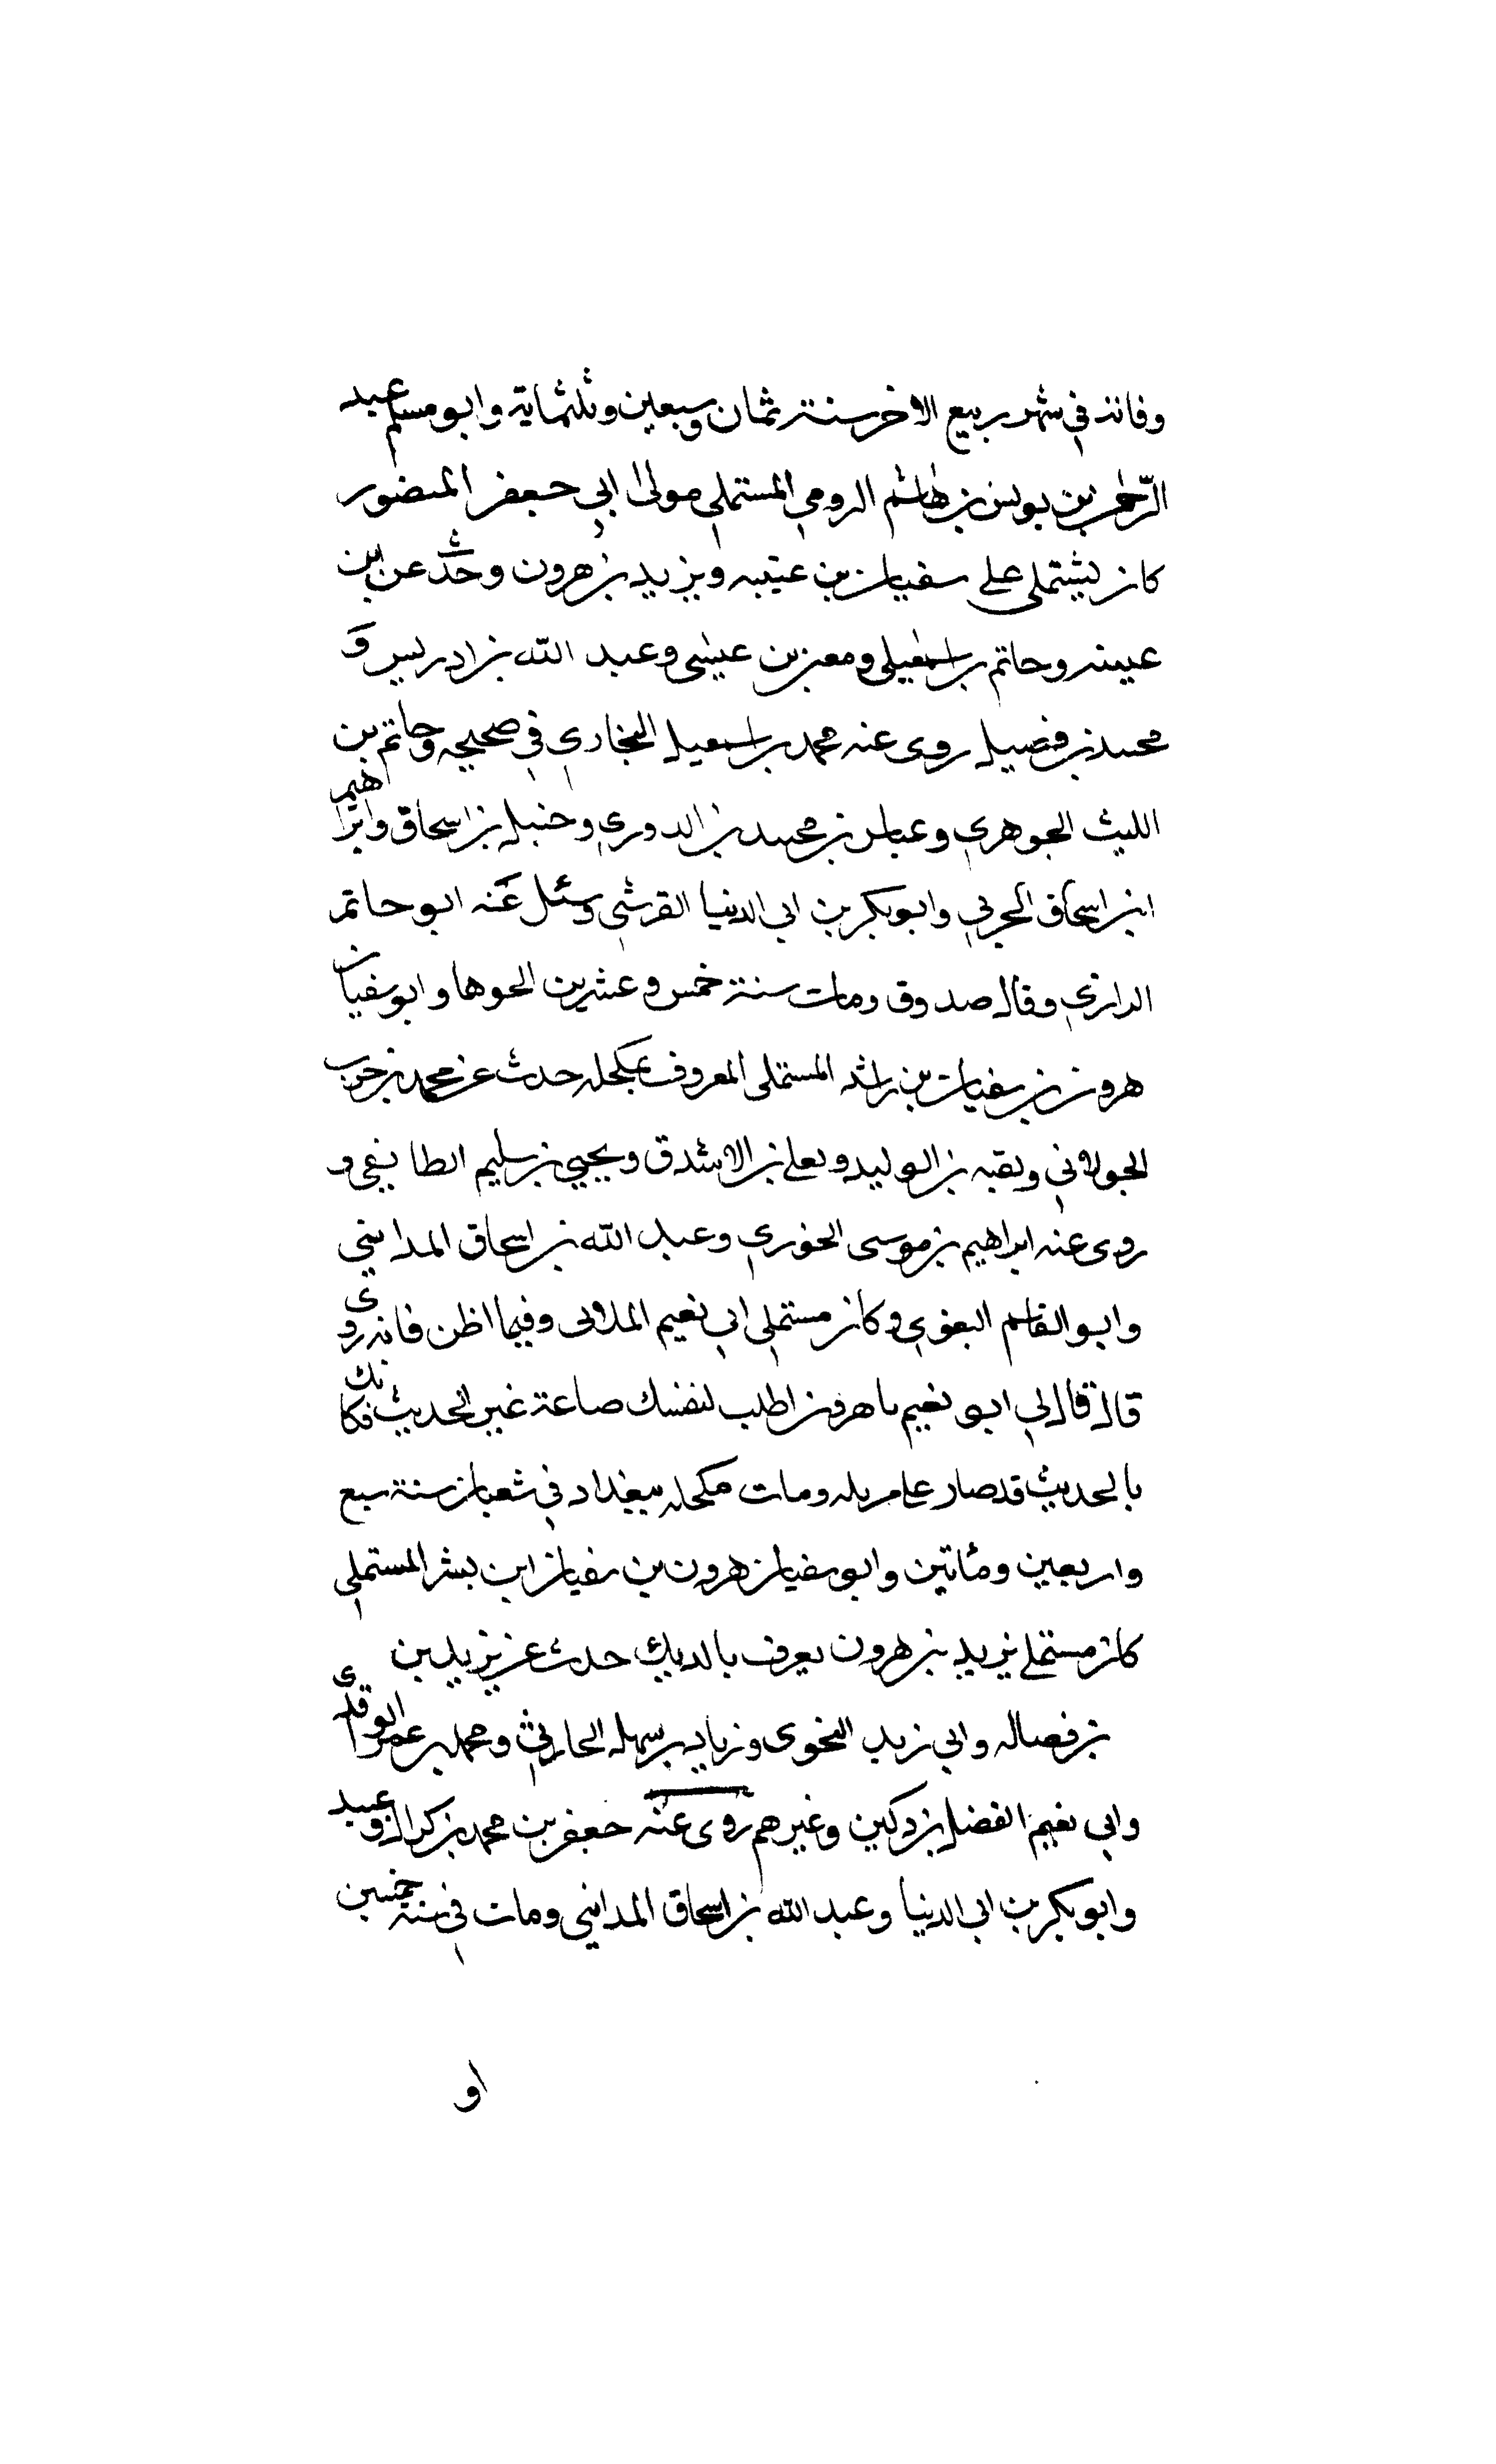 وفاته في شهر ربيع الاخر سنة ثمان وسبعين وثلثماية وابو مسلم عبد
الرحمن بن يونس بن هاشم الرومي المستملي مولى ابي جعفر المنصور
كان يستملي على سفيان بن عيينه ويزيد بن هرون وحدث عن ابن
عيينه وحاتم بن اسمعيل ومعن بن عيسى وعبد الله بن ادريس و
محمد بن فضيل روى عنه محمد بن اسمعيل البخاري في صحيحه وحاتم بن
الليث الجوهري وعباس بن محمد بن الدوري وحنبل بن اسحاق وابراهيم
ابن اسحاق الحربي وابو بكر بن ابي الدنيا القرشي وسئل عنه ابو حاتم
الرازي وقال صدوق ومات سنة خمس وعشرين الحوها وابو سفيان
هرون بن سفيان بن راشد المستملي المعروف بمكحله حدث عن محمد بن حرب
الخولاني وبقيه بن الوليد ويعلى بن الاشدق ويحيى بن سليم الطايفي و
روى عنه ابراهيم بن موسى الخوري وعبد الله بن اسحاق المدايني
وابو القاسم البغوي وكان مستملي ابي نعيم الملاى وفيما اظن فانه روى
قال قال لي ابو نعيم ياهرون اطلب لنفسك صاعة غير الحديث فكانك
بالحديث قد صار على مزبله ومات مكحله ببغداد في شعبان سنة سبع
واربعين ومئاتين وابو سفيان هرون بن سفيان ابن بشر المستملي
كان مستملي يزيد بن هرون يعرف بالديك حدث عن يزيد بن
بن فضاله وابي زيد النحوى وزياد بن سهل الحارثي ومحمد بن عمر الواقدى
وابي نعيم الفضل بن دكين وغيرهم روى عنه جعفر بن محمد بن كزال وعبيد
وابو بكر بن ابي الدنيا وعبد الله بن اسحاق المدايني ومات في سنة خمسين
او